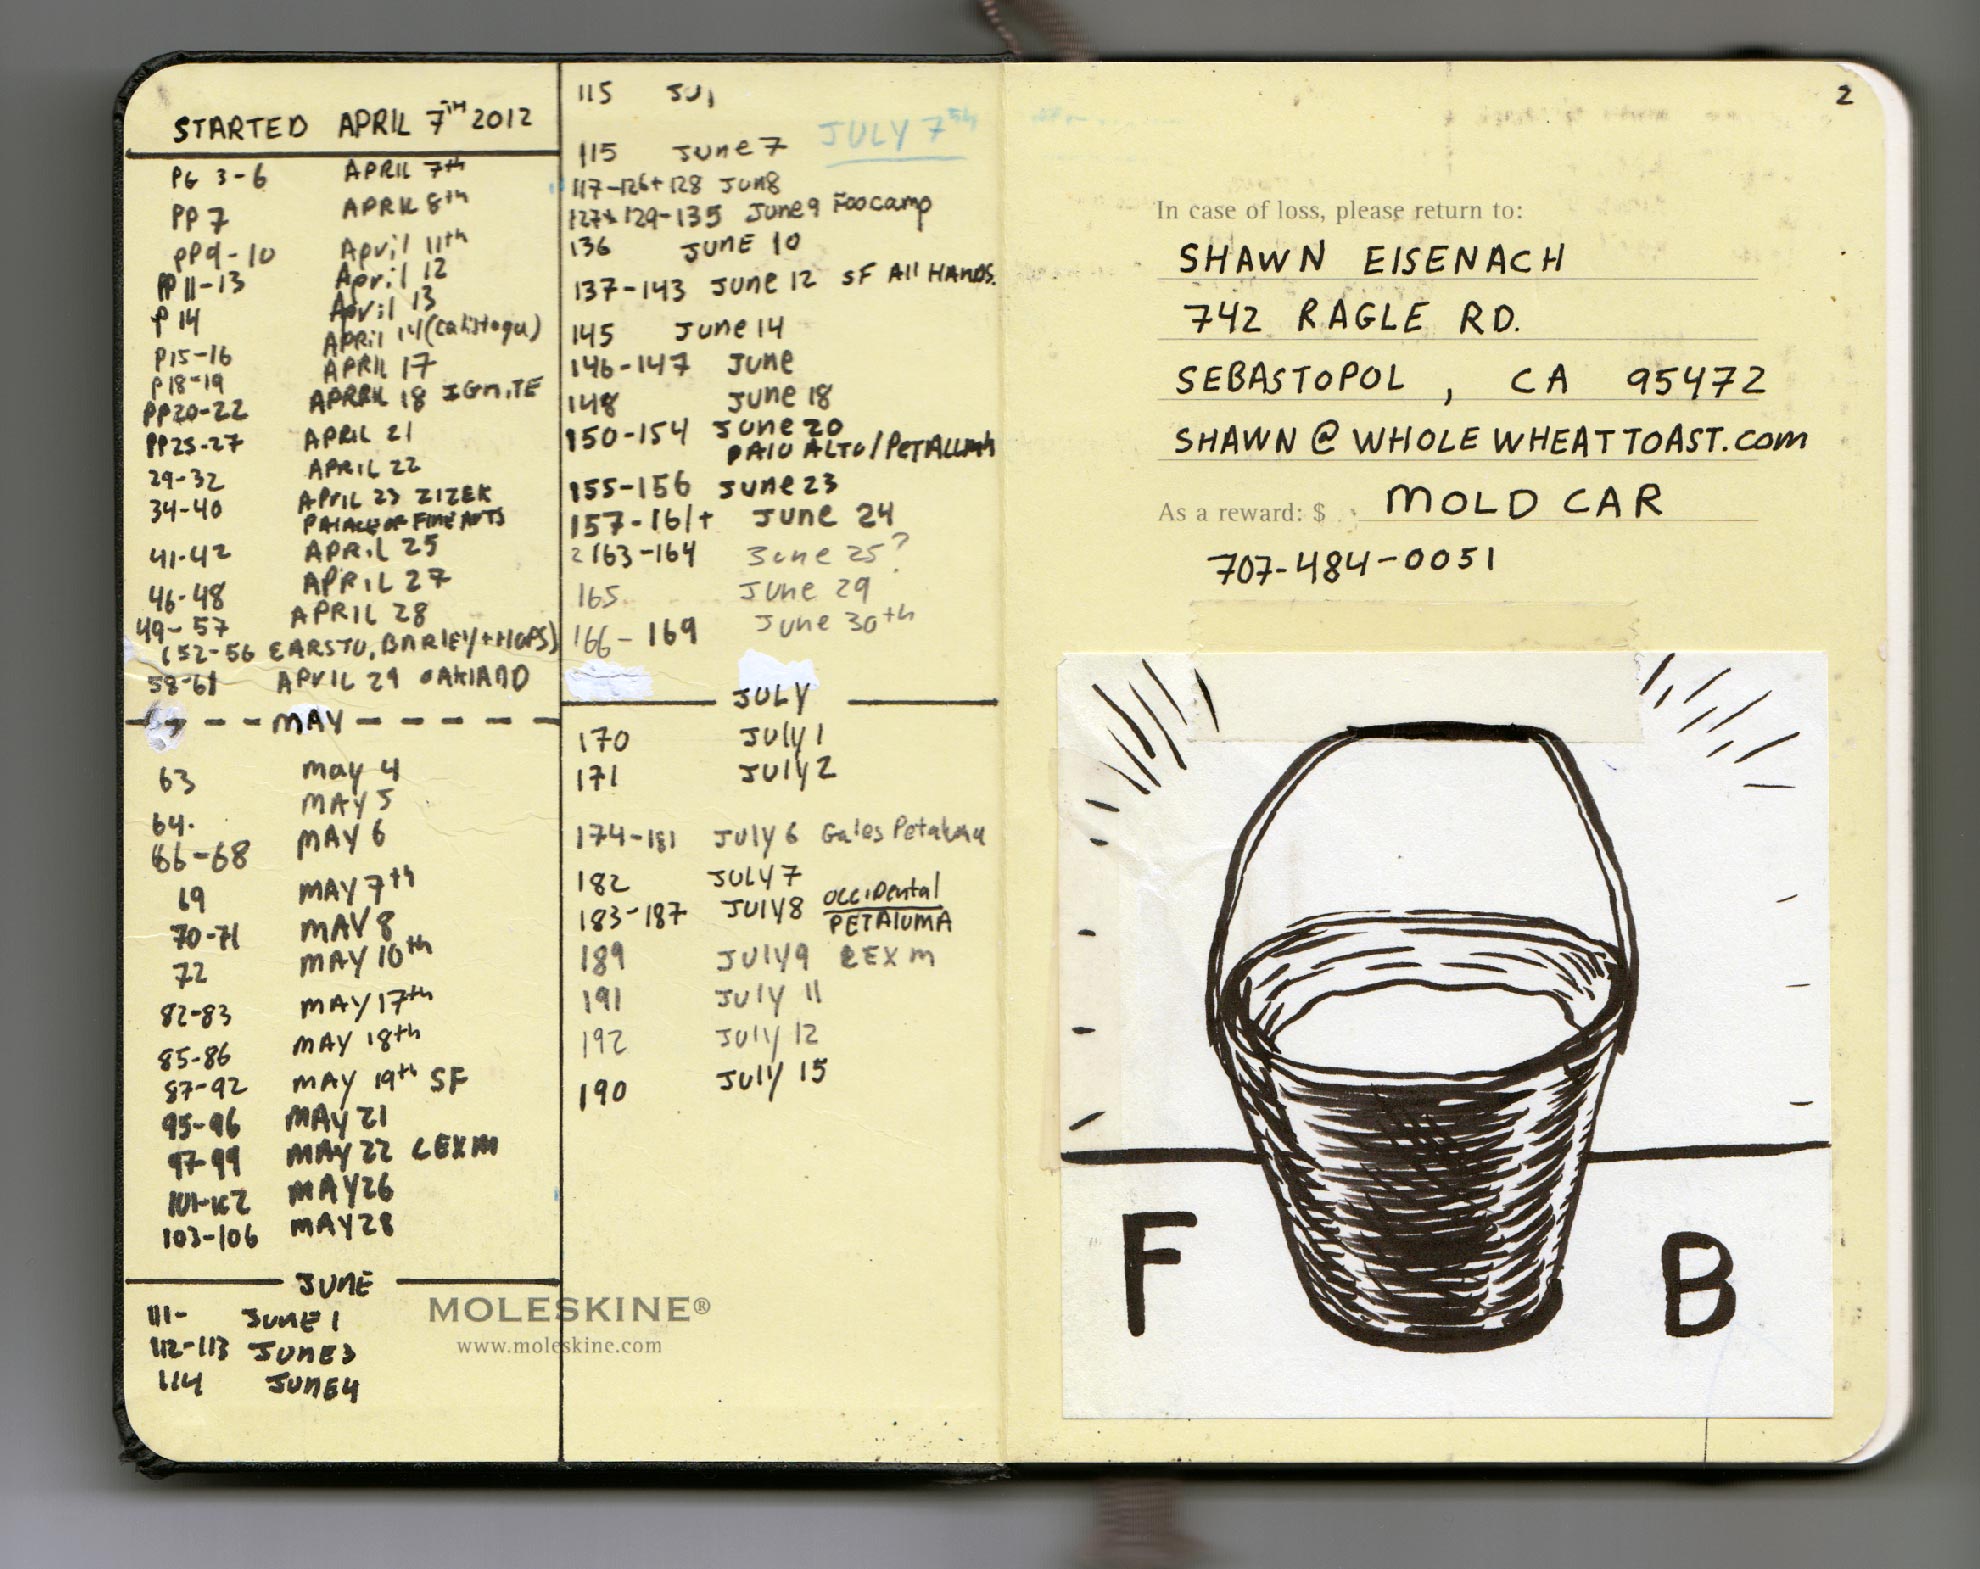 STARTED APRIL 7TH 2012
PG 3-6 APRIL 7th
PP 7 APRIL 8th
PP9-10 April 11th
PP 11-13 April 12
P 14 April 13
P15-16 APRil 14 (calistoga)
P18-19 APRIL 17
PP20-22 APRIL 18 IGNITE
PP25-27 APRIL 21
29-32 APRIL 22
34-40 APRIL 23 ZIZEK
PALACE OF FINE ARTS
41-42 APRIL 25
46-48 APRIL 27
49-57 APRIL 28
(52-56 EARSTU, BARLEY + HOPS)
58-61 APRIL 29 OAKLAND
MAY
63 may 4
64. MAY 5
66-68 MAY 6
69 MAY 7th
70-71 MAY 8
72 MAY 10th
82-83 MAY 17th
85-86 MAY 18th
87-92 MAY 19th SF
95-96 MAY 21
97-99 MAY 22 LEXM
101-102 MAY 26
103-106 MAY 28
JUNE
111- JUNE 1
112-113 JUNE 3
114 JUNE 4
MOLESKINE®
www.moleskine.com
115 JU
JULY 7
115 June 7
117-126+128 Jun8
127+129-135 June 9 Foocamp
136 JUNE 10
137-143 June 12 SF All HANDS.
145 June 14
146-147 June
148 June 18
150-154 June 20
PALO ALTO/PETALUMA
155-156 June 23
157-161+ June 24
163-164 June 25?
165 June 29
166-169 June 30th
JULY
170 July 1
171 July 2
174-181 July 6 Gales Petaluma
182 JULY 7
183-187 JULY 8 OCCIDental
PETALUMA
189 JULY 9 LEXM
191 JULY 11
192 July 12
190 July 15
2
In case of loss, please return to:
SHAWN EISENACH
742 RAGLE RD.
SEBASTOPOL, CA 95472
SHAWN@WHOLEWHEATTOAST.com
As a reward: $ MOLD CAR
707-484-0051
F B